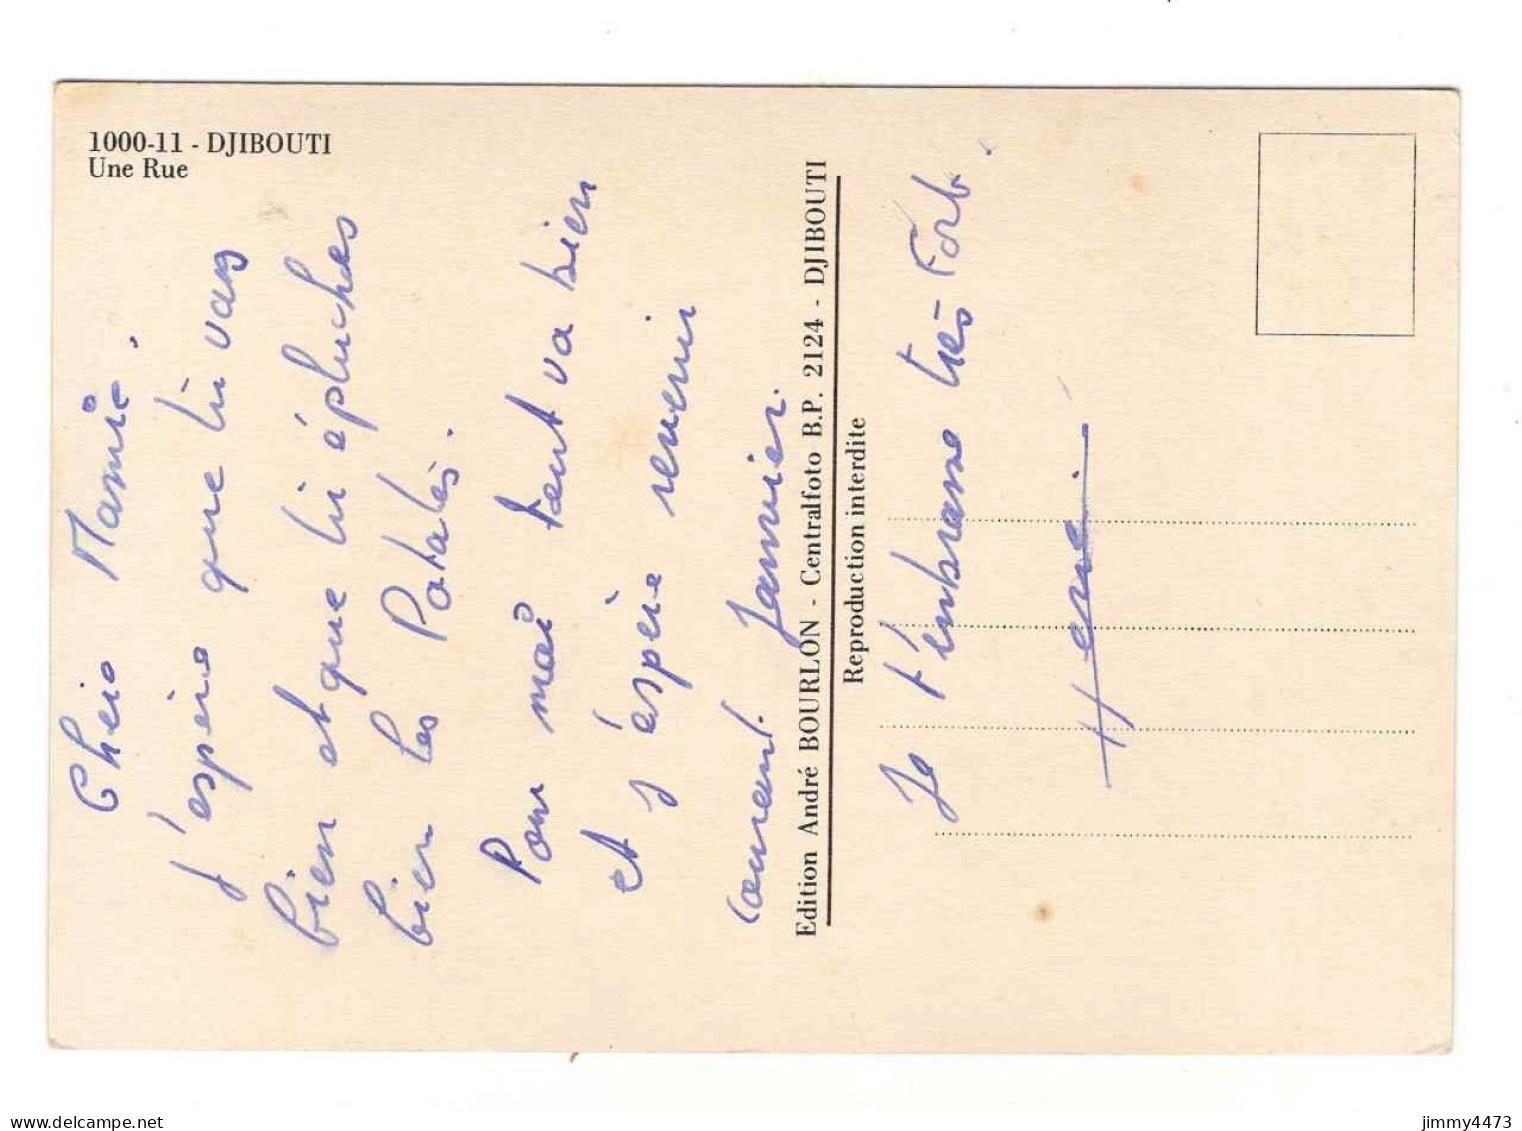 1000-11 - DJIBOUTI
Une Rue
Chère Mamie.
J'espère que tu vas
bien et que tu épluches
bien les Patates.
Pour moi tout va bien
et j'espère revenir
courant. Janvier.
Edition André BOURLON - Centralfoto B.P. 2124 - DJIBOUTI
Reproduction interdite
Je t'embrasse très Fort.
delcampe.net
jimmy4473